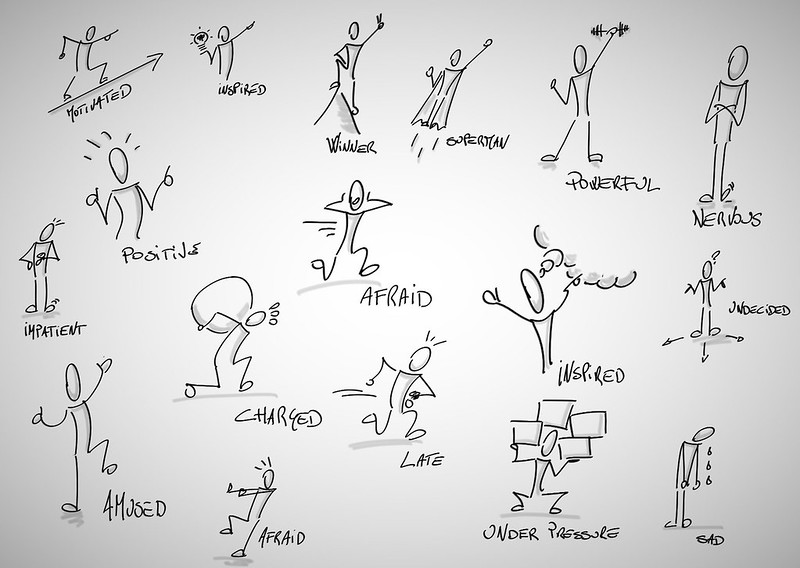 MOTIVATED
INSPIRED
WINNER
SUPERMAN
POWERFUL
NERVOUS
POSITIVE
IMPATIENT
AFRAID
INSPIRED
UNDECIDED
CHARGED
LATE
AMUSED
AFRAID
UNDER PRESSURE
SAD